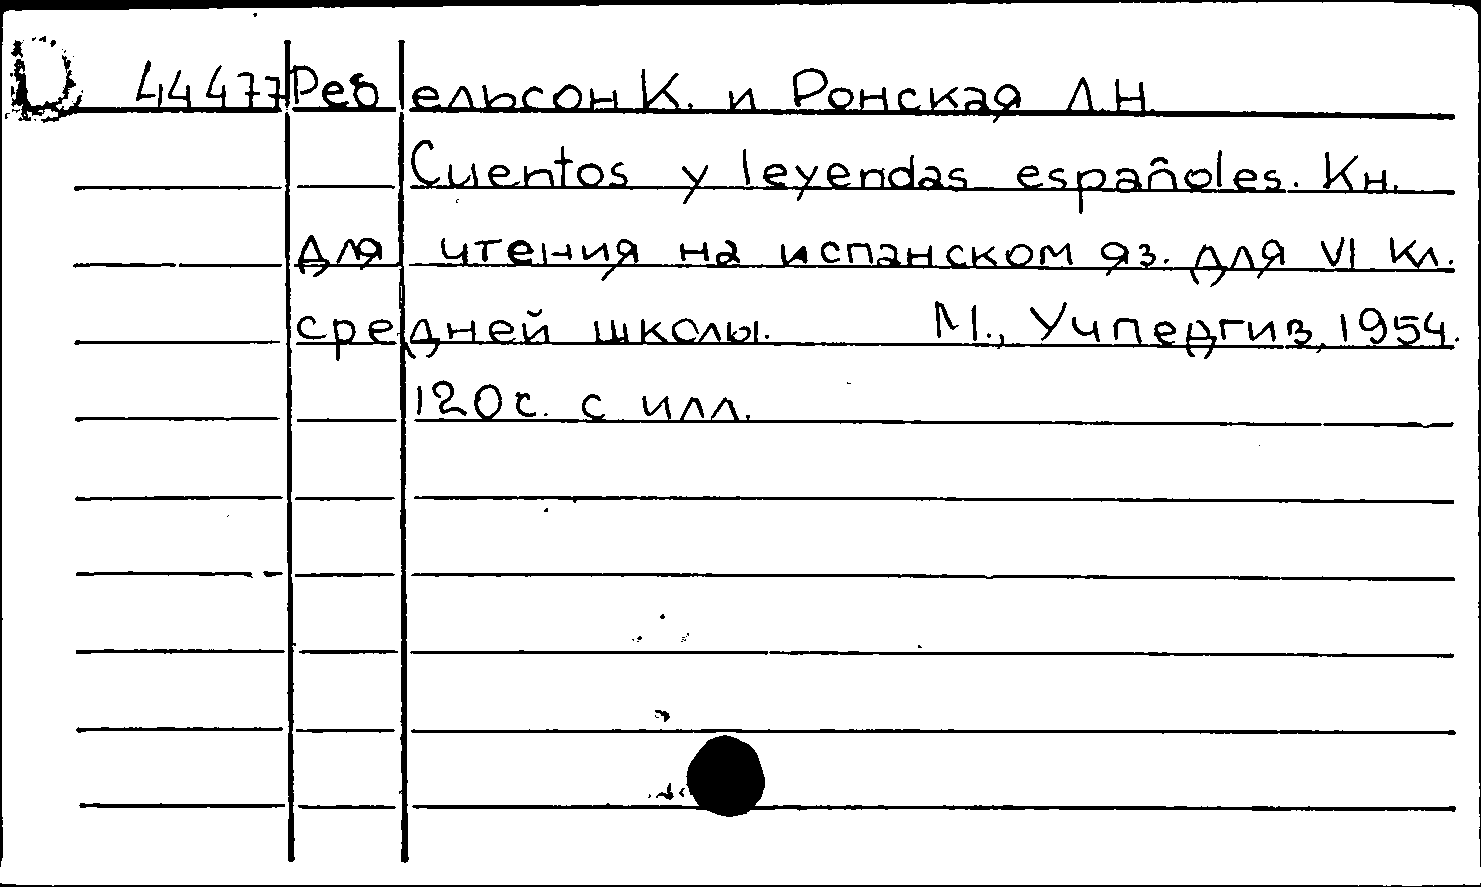 D 44477 Ребельсон К. и Ронская Л.Н.
Cuentos y leyendas españoles. Кн.
для чтения на испанском яз. для VI кл.
средней школы. М., Учпедгиз, 1954.
120 с. с илл.